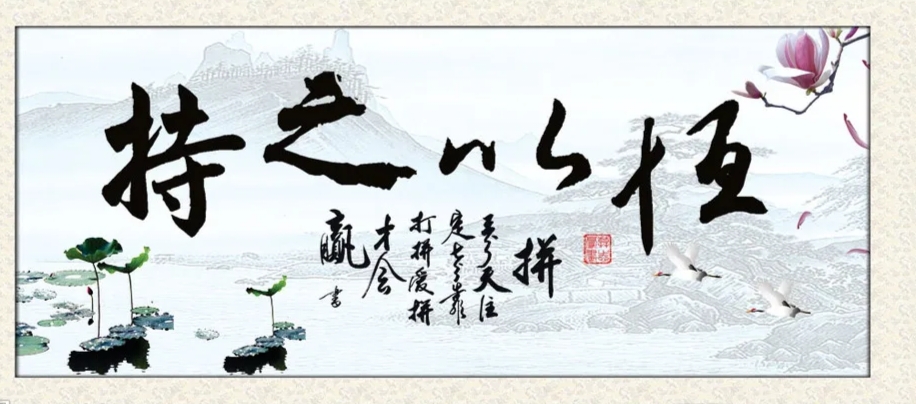 持之以恒
拼
三分天注
定七分靠
打拼爱拼
才会
赢
書